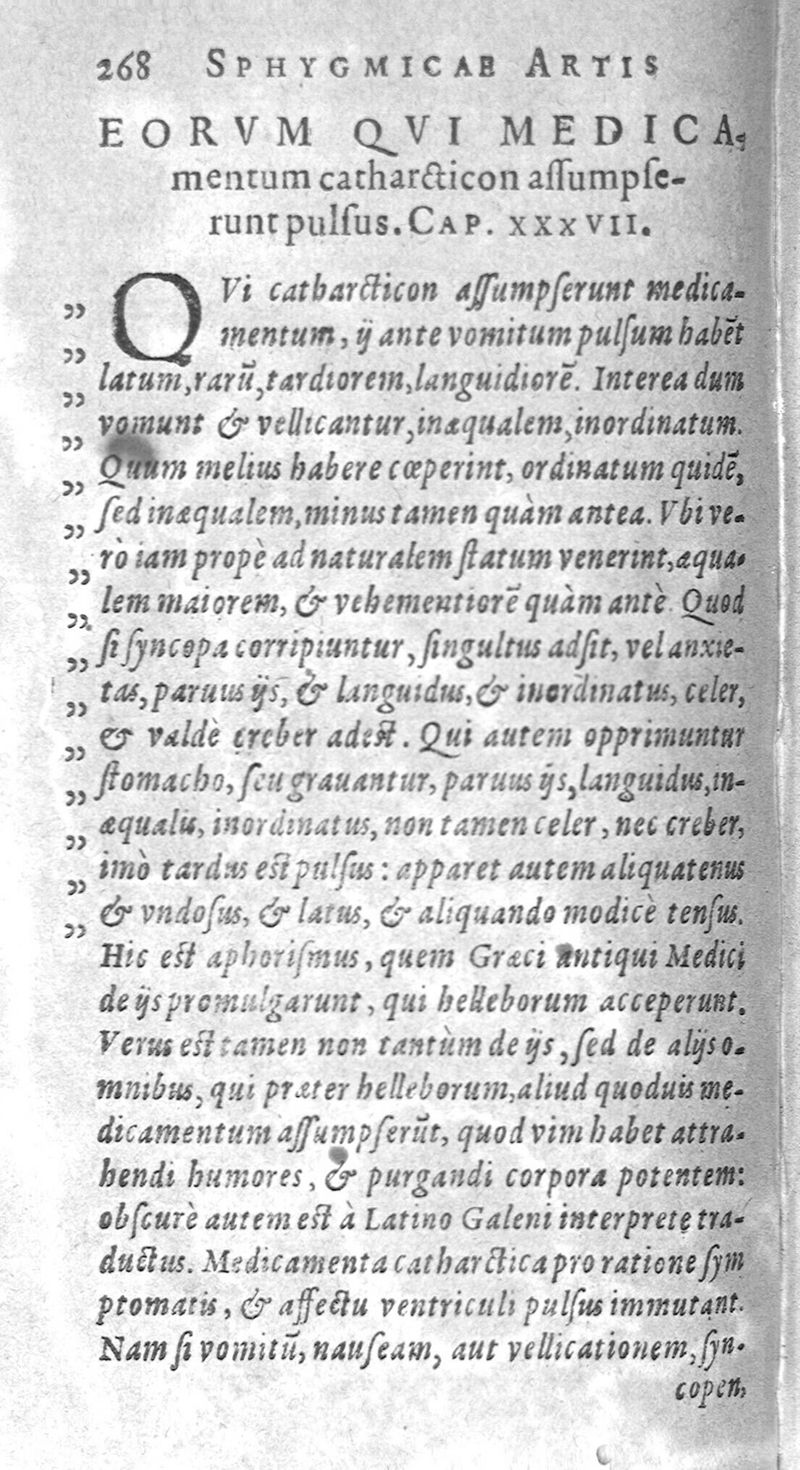 268 SPHYGMICAE ARTIS
EORVM QVI MEDICA-
mentum catharcticon aſſumpſe-
runt pulſus. CAP. XXXVII.
„ QVi catharcticon aſſumpſerunt medica-
„ mentum, ij ante vomitum pulſum habēt
„ latum, rarū, tardiorem, languidiorē. Interea dum
„ vomunt & vellicantur, inæqualem, inordinatum.
„ Quum melius habere cœperint, ordinatum quidē,
„ ſed inæqualem, minus tamen quàm antea. Vbi ve-
„ rò iam propè ad naturalem ſtatum venerint, æqua-
„ lem maiorem, & vehementiorē quàm antè. Quod
„ ſi ſyncopa corripiuntur, ſingultus adſit, vel anxie-
„ tas, paruus ijs, & languidus, & inordinatus, celer,
„ & valdè creber adeſt. Qui autem opprimuntur
„ ſtomacho, ſeu grauantur, paruus ijs, languidus, in-
„ æqualis, inordinatus, non tamen celer, nec creber,
„ imò tardus eſt pulſus: apparet autem aliquatenus
„ & vndoſus, & latus, & aliquando modicè tenſus.
Hic eſt aphoriſmus, quem Græci antiqui Medici
de ijs promulgarunt, qui helleborum acceperunt.
Verus eſt tamen non tantùm de ijs, ſed de alijs o-
mnibus, qui præter helleborum, aliud quoduis me-
dicamentum aſſumpſerūt, quod vim habet attra-
hendi humores, & purgandi corpora potentem:
obſcurè autem eſt à Latino Galeni interprete tra-
ductus. Medicamenta catharctica pro ratione ſym
ptomatis, & affectu ventriculi pulſus immutant.
Nam ſi vomitū, nauſeam, aut vellicationem, ſyn-
copen,